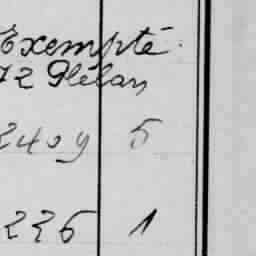 Exempté
72 Plélan
2409 5
226 1